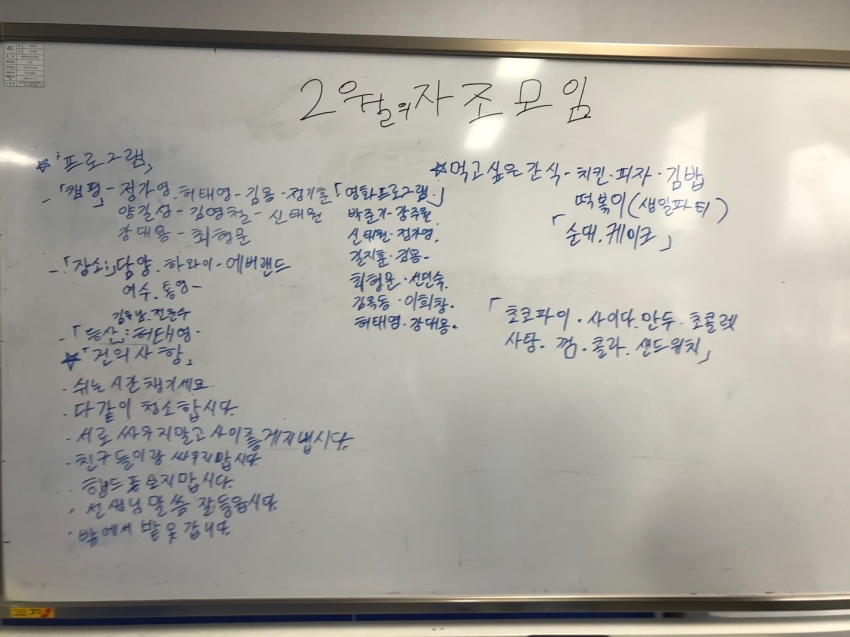 2월의 자조모임
☆ 프로그램
-「캠핑」- 정가영. 허태영 - 김용·정기훈
양길성 - 김영철 - 신태원
강대용 - 최형문
-「장소」담양. 하와이 - 에버랜드
여수. 통영 -
-「등산」: 허태영.
「영화프로그램」
박준가·강주원
신태원·정가영.
길지훈·김용.
최형문·선민숙.
김옥동·이희창.
허태영·강대용.
☆「건의사항」
· 쉬는시간 챙기세요
· 다같이 청소합시다.
· 서로 싸우지말고 사이좋게지냅시다.
· 친구들이랑 싸우지맙시다.
· 핸드폰보지맙시다.
· 선생님 말씀 잘들읍시다.
☆ 먹고싶은간식 - 치킨·피자·김밥
떡볶이(생일파티)
「순대.케이크」
「초코파이·사이다.만두·초콜렛
사탕·껌·콜라·샌드위치」